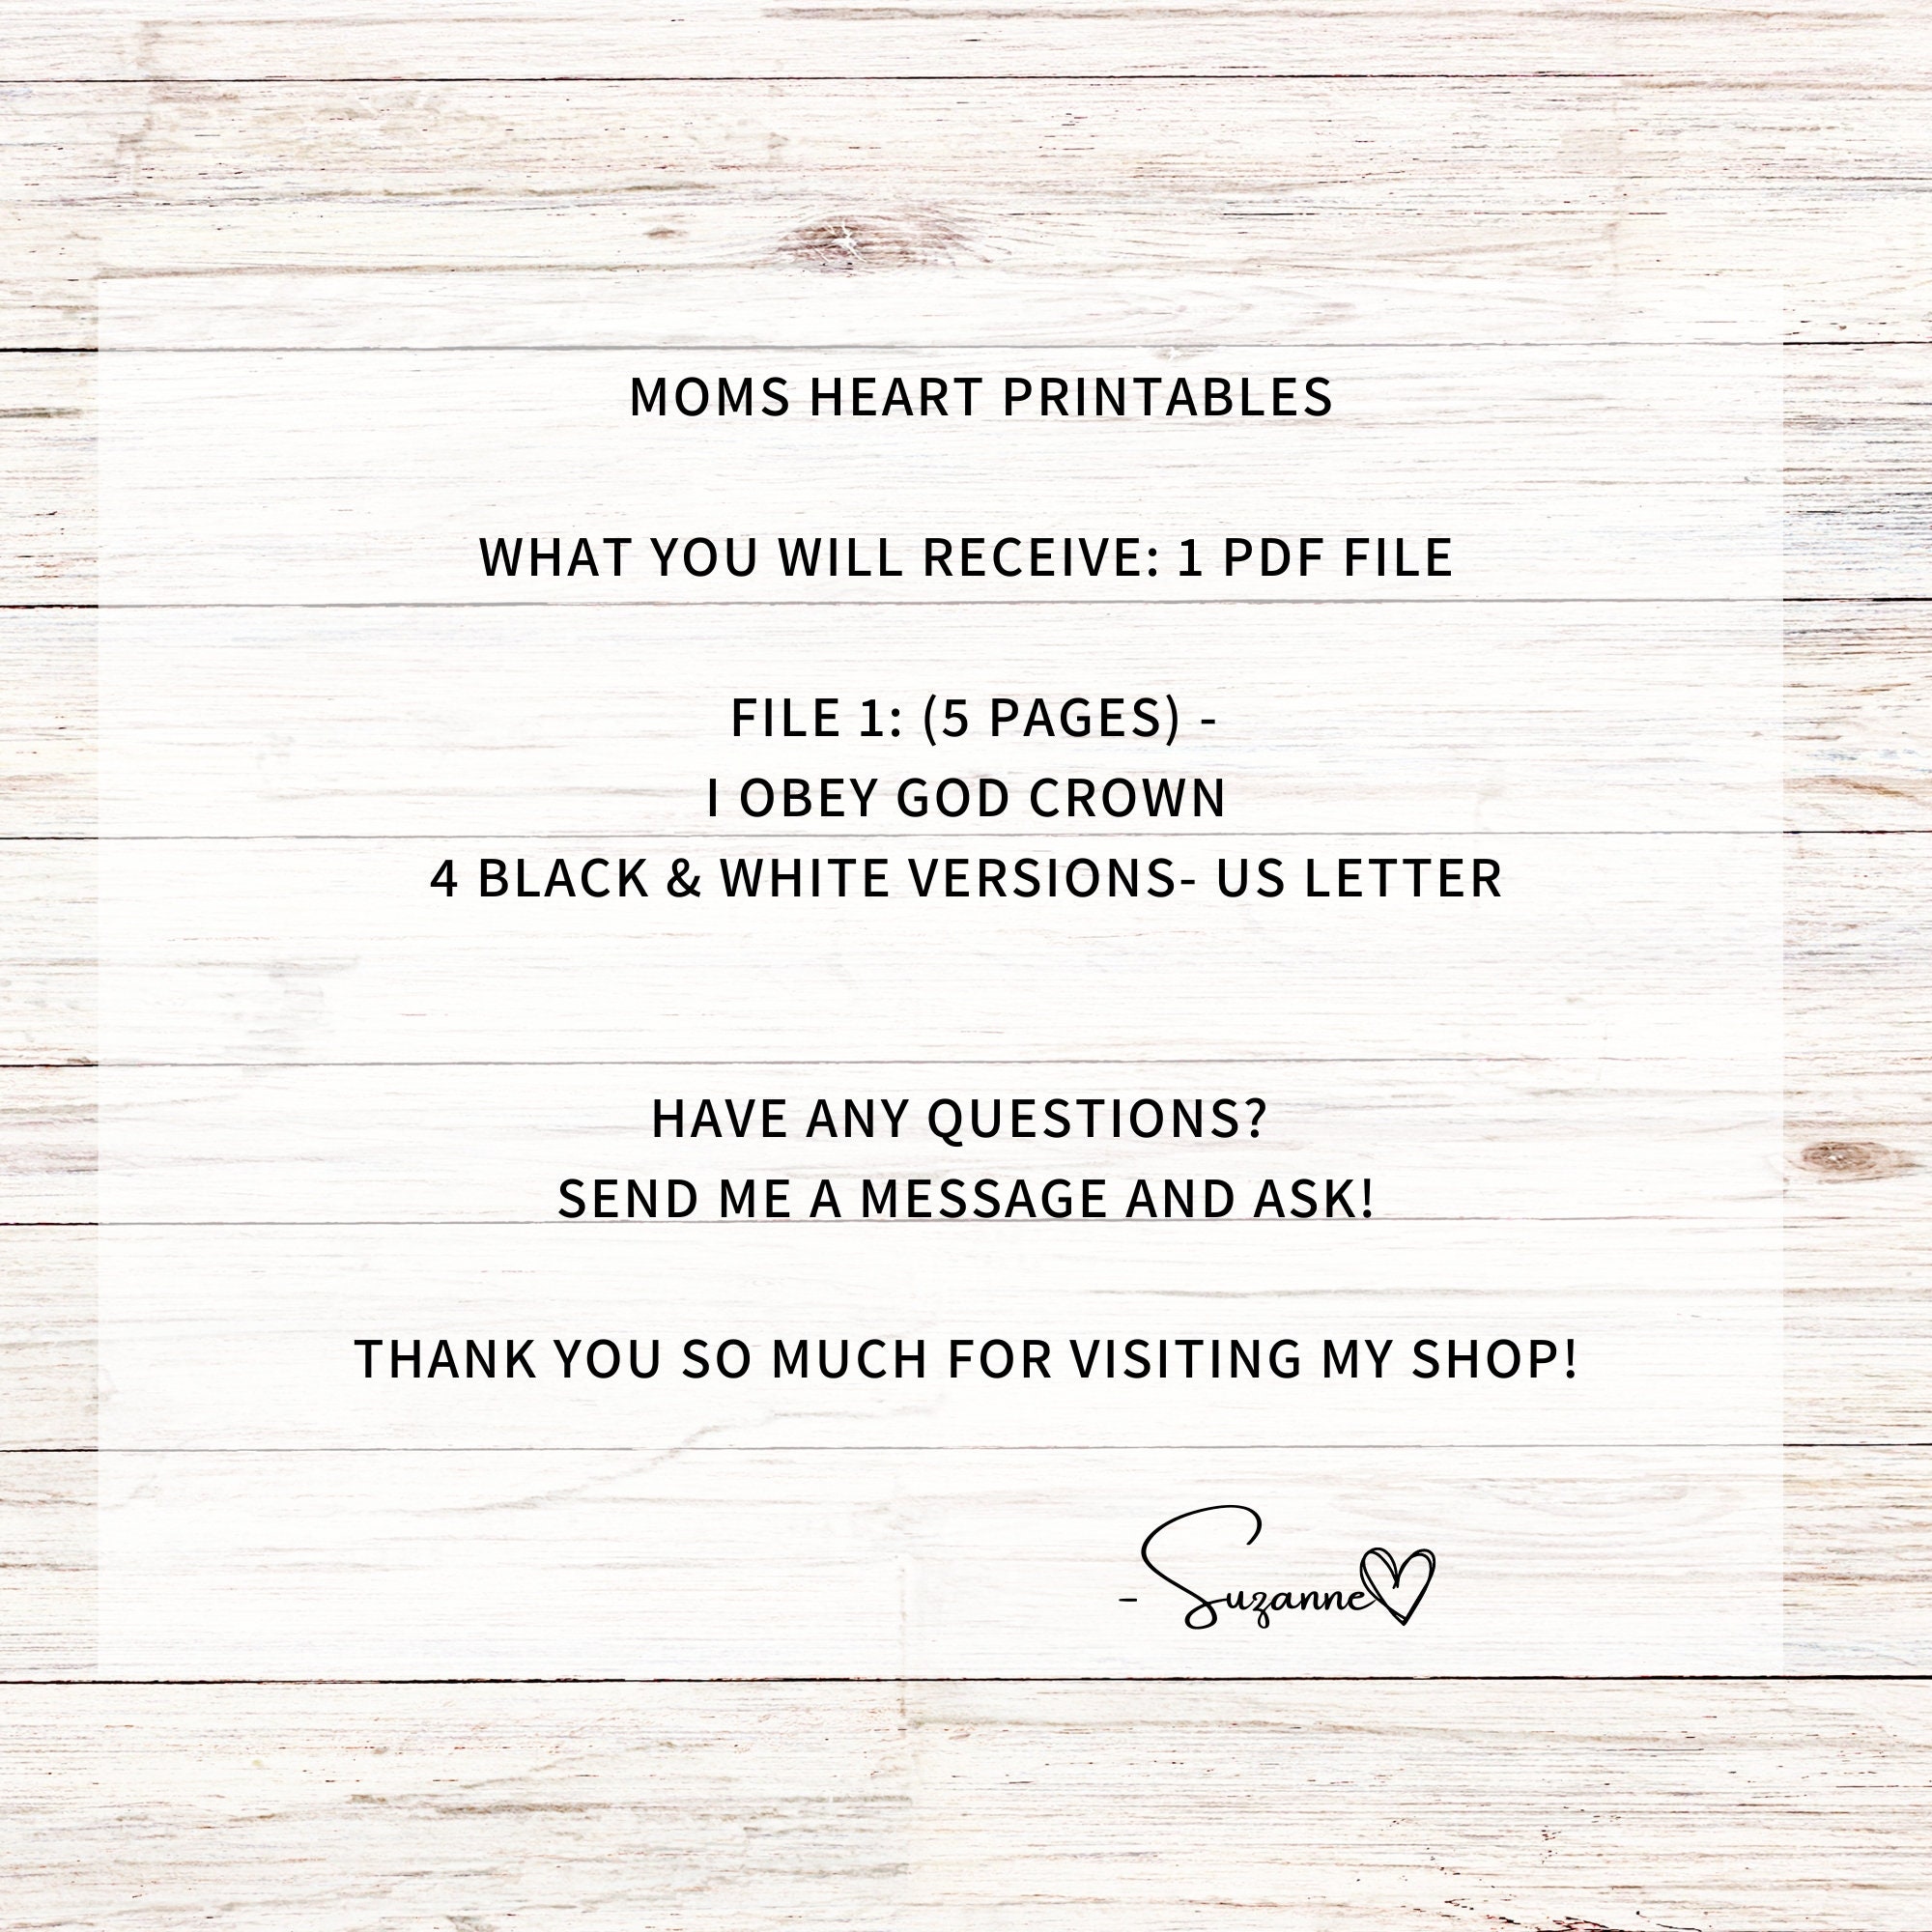 MOMS HEART PRINTABLES
WHAT YOU WILL RECEIVE: 1 PDF FILE
FILE 1: (5 PAGES) -
I OBEY GOD CROWN
4 BLACK & WHITE VERSIONS- US LETTER
HAVE ANY QUESTIONS?
SEND ME A MESSAGE AND ASK!
THANK YOU SO MUCH FOR VISITING MY SHOP!
- Suzanne